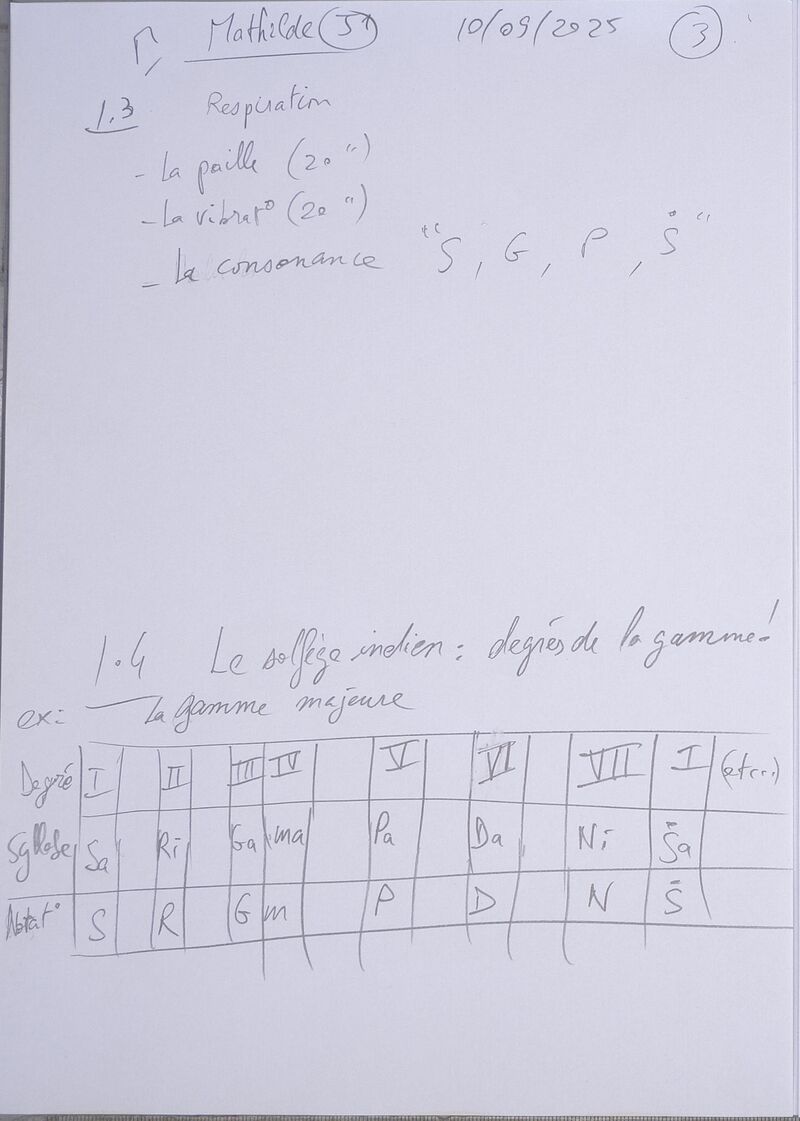 Mathilde 10/09/2025 3
1.3 Respiration
- La paille (20 ")
- La vibrat° (20 ")
- La consonance "S, G, P, Ṡ"
1.4 Le solfège indien : degrés de la gamme!
ex: la gamme majeure
Degré I II III IV V VI VII I (etc...)
Syllabe Sa Ri Ga ma Pa Da Ni Ṡa
Notat° S R G m P D N Ṡ